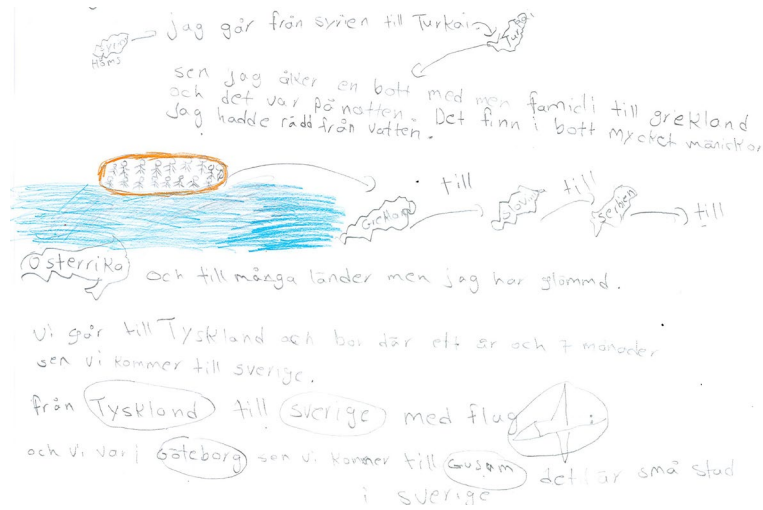 jag går från syrien till Turkai
Syrien
Homs
Turkai
sen jag åker en bott med men familli till grekland
och det var på natten. Det finn i bott mycket mäniskor
jag hadde rädd från vatten.
till till
Greklan Serbien till
Österrika
och till många länder men jag har glömmd.
Vi går till Tyskland och bor där ett år och 7 månader
sen vi kommer till sverige.
från Tyskland till sverige med flug
och vi var i Göteborg sen vi kommer till Gusum det är små stad
i sverige